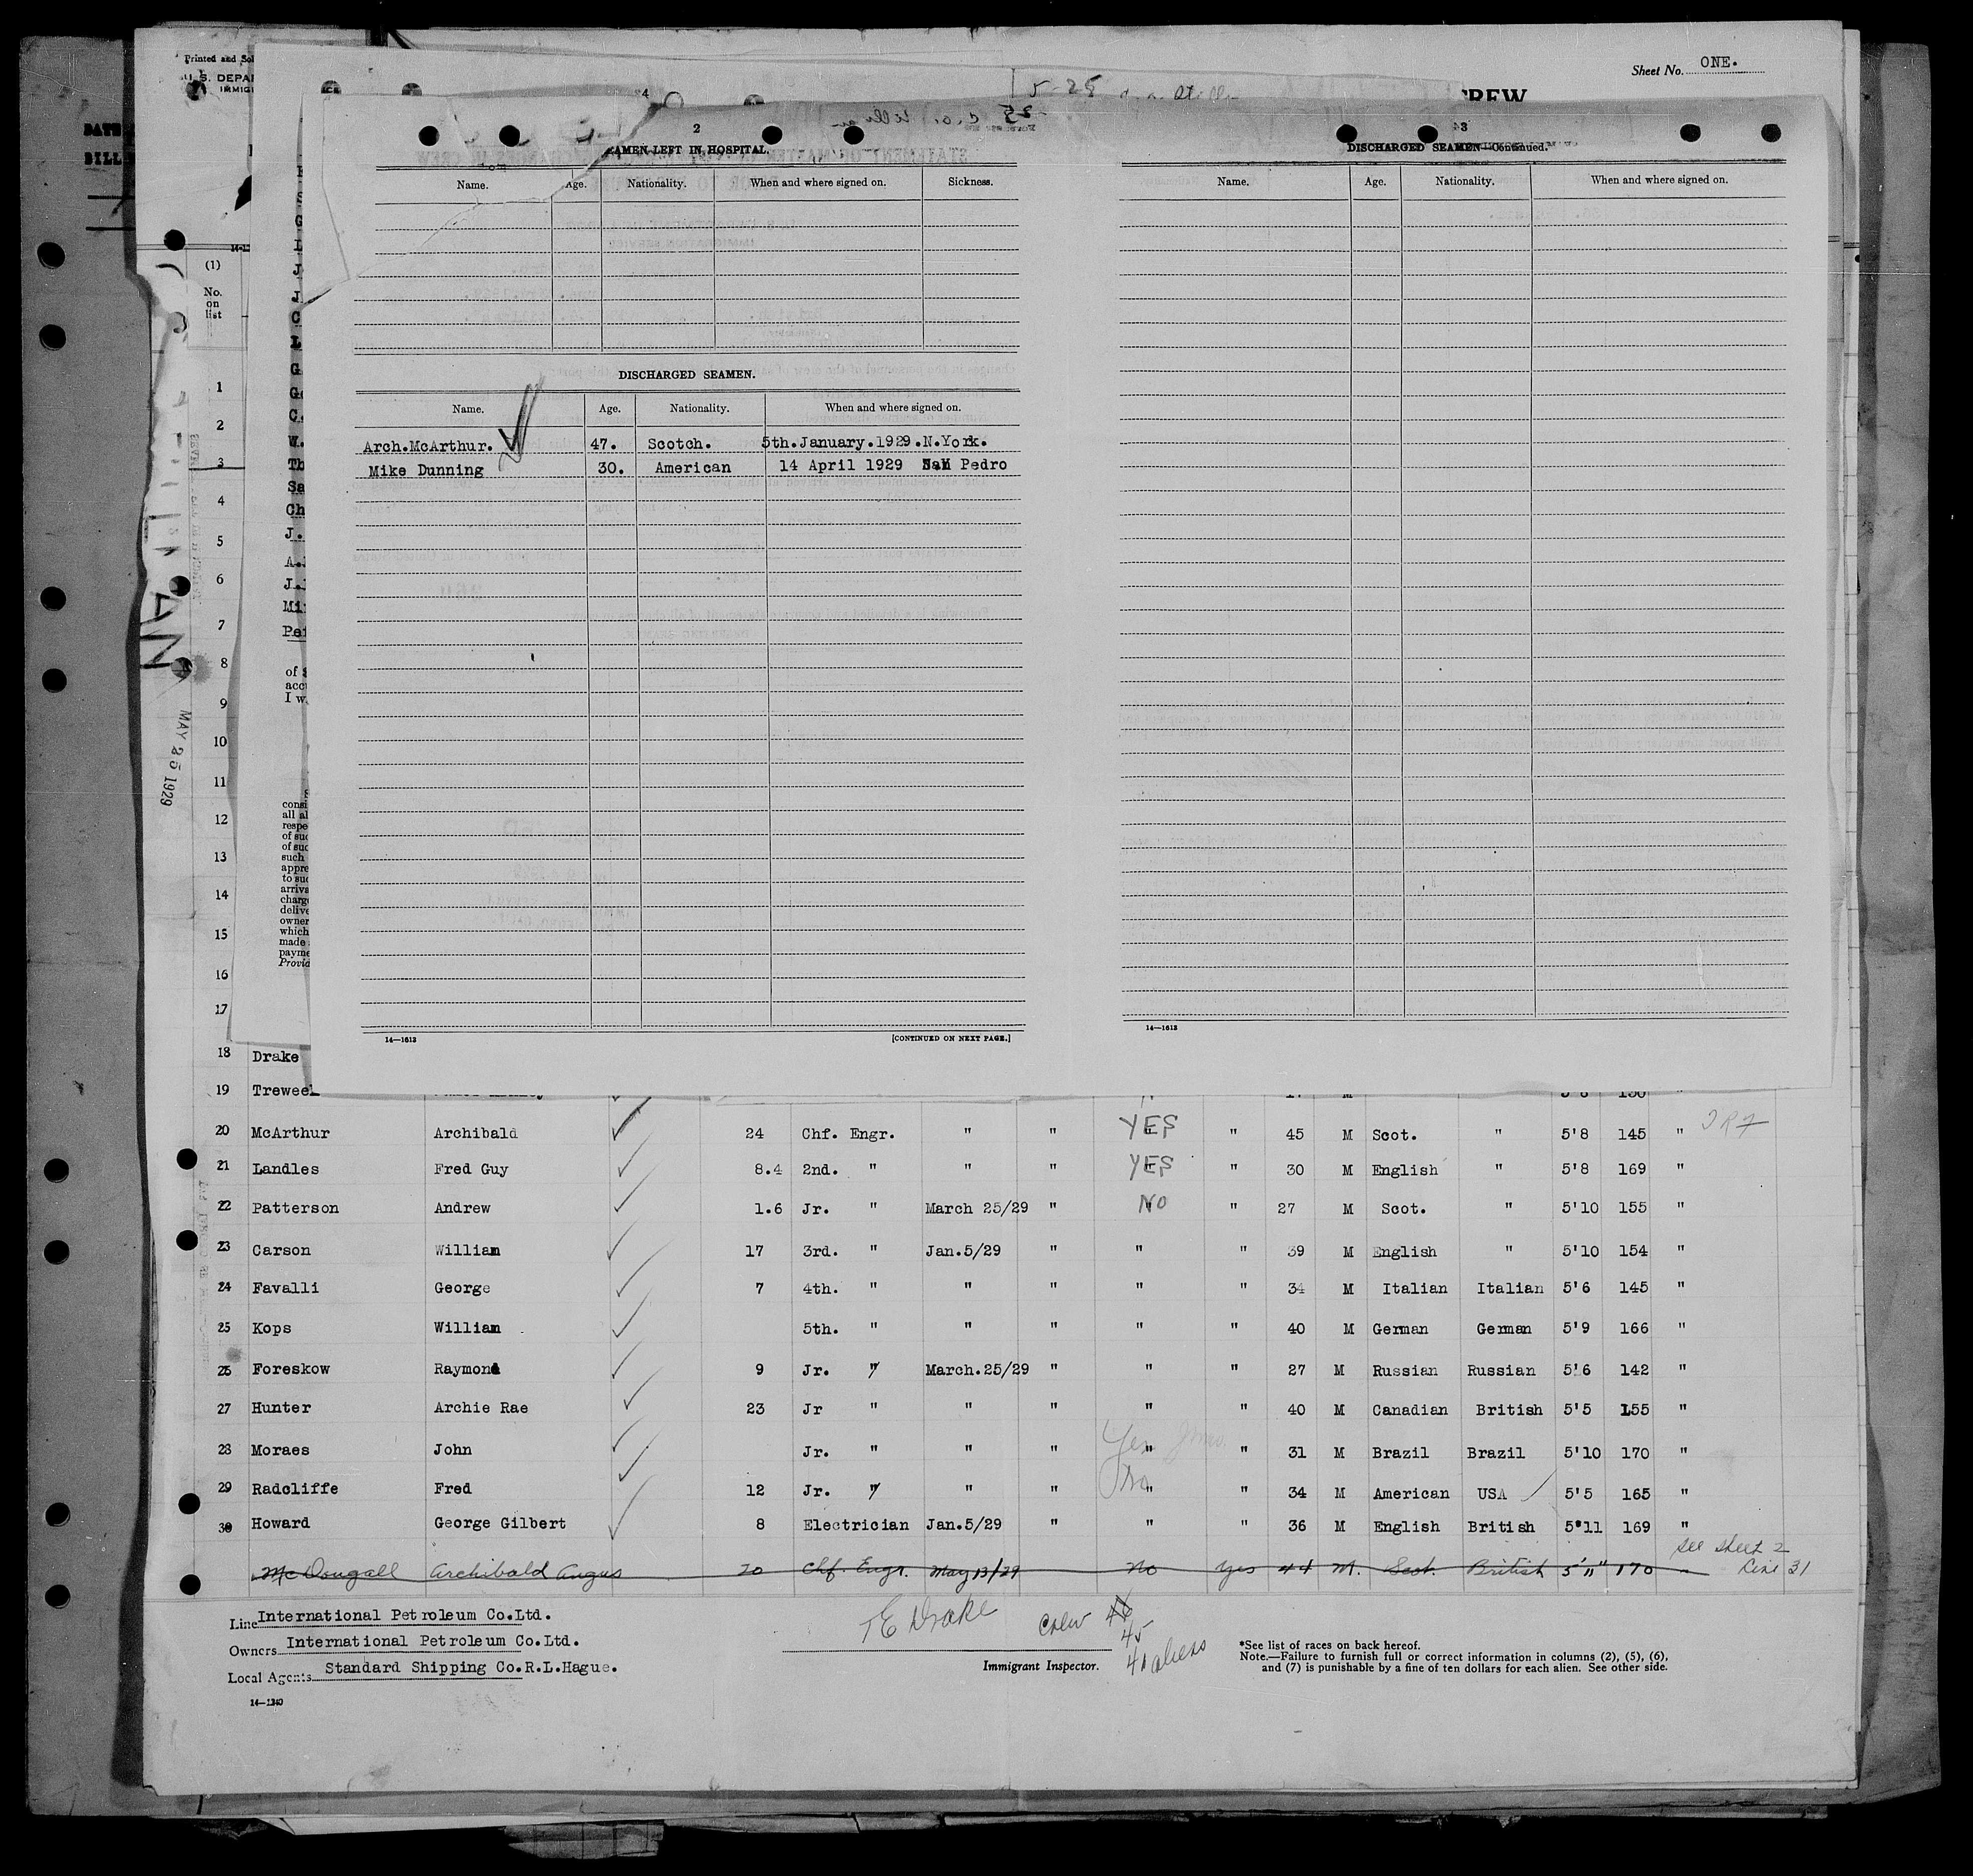 Printed and Sol
U. S. DEPAR
IMMIG
Sheet No. ONE.
CREW
DATE
BILL
2
SEAMEN LEFT IN HOSPITAL.
Name. Age. Nationality. When and where signed on. Sickness.
3
DISCHARGED SEAMEN—Continued.
Name. Age. Nationality. When and where signed on.
(1)
No.
on
list
DISCHARGED SEAMEN.
Name. Age. Nationality. When and where signed on.
Arch.McArthur. 47. Scotch. 5th.January.1929.N.York.
Mike Dunning 30. American 14 April 1929 San Pedro
1
2
3
4
5
6
7
8
9
10
11
12
13
14
15
16
17
G
J
C
L
G
Ge
C.
W.
Th
Sa
Ch
J.
A.
J.
Mi
Pe
of
acc
I w
MAY 25 1929
consi
all al
respe
of suc
of suc
such
appre
to suc
arriva
charg
delive
owner
which
made
payme
Provid
14—1613 [CONTINUED ON NEXT PAGE.]
14—1613
18 Drake
19 Treweek
20 McArthur Archibald 24 Chf. Engr. " " YES " 45 M Scot. " 5'8 145 "
21 Landles Fred Guy 8.4 2nd. " " " YES " 30 M English " 5'8 169 "
22 Patterson Andrew 1.6 Jr. " March 25/29 " No " 27 M Scot. " 5'10 155 "
23 Carson William 17 3rd. " Jan.5/29 " " " 39 M English " 5'10 154 "
24 Favalli George 7 4th. " " " " " 34 M Italian Italian 5'6 145 "
25 Kops William 5th. " " " " " 40 M German German 5'9 166 "
26 Foreskow Raymond 9 Jr. " March.25/29 " " " 27 M Russian Russian 5'6 142 "
27 Hunter Archie Rae 23 Jr " " " " " 40 M Canadian British 5'5 155 "
28 Moraes John Jr. " " " Yes " " 31 M Brazil Brazil 5'10 170 "
29 Radcliffe Fred 12 Jr. " " " No " " 34 M American USA 5'5 165 "
30 Howard George Gilbert 8 Electrician Jan.5/29 " " " 36 M English British 5'11 169 "
See sheet 2
Line 31
McDougall Archibald Angus 20 Chf. Engr. May 13/29 No Yes 44 M. Scot. British 5'11" 170
Line International Petroleum Co.Ltd.
Owners International Petroleum Co.Ltd.
Local Agents Standard Shipping Co.R.L.Hague.
14—1240
T E Drake
Immigrant Inspector.
Crew 46
45
41 aliens
*See list of races on back hereof.
Note.—Failure to furnish full or correct information in columns (2), (5), (6),
and (7) is punishable by a fine of ten dollars for each alien. See other side.